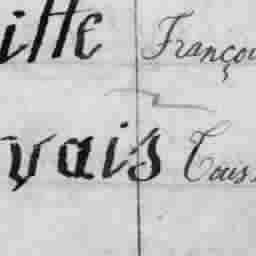 itte Françoi
vais Caiss